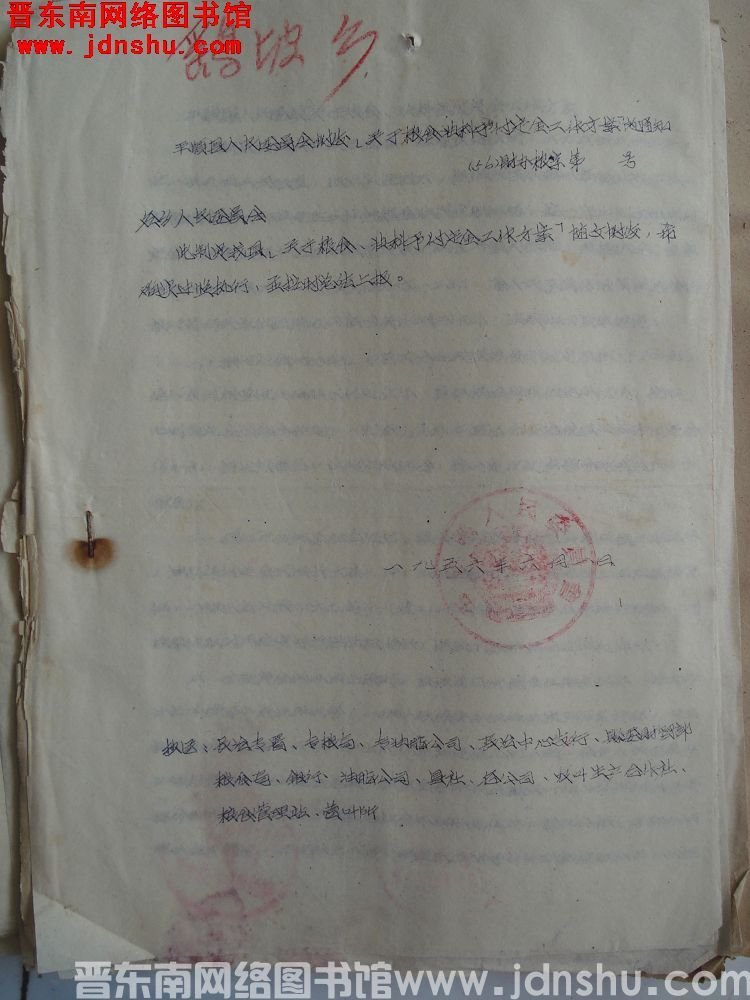 晋东南网络图书馆
www.jdnshu.com
坡乡
平顺县人民委员会附发「关于粮食油料予付定金工作方案」的通知
(56)财办粮字第 号
各乡人民委员会
关于粮食、油料予付定金工作方案」随文附发,希
执行,并按时总结上报。
一九五六年六月一日
报送:长治专署、专粮局、专油脂公司、长治中心支行、县委财贸部
粮食局、银行、油脂公司、县社、公司、农业生产合作社、
粮食管理站、营业所
晋东南网络图书馆 www.jdnshu.com